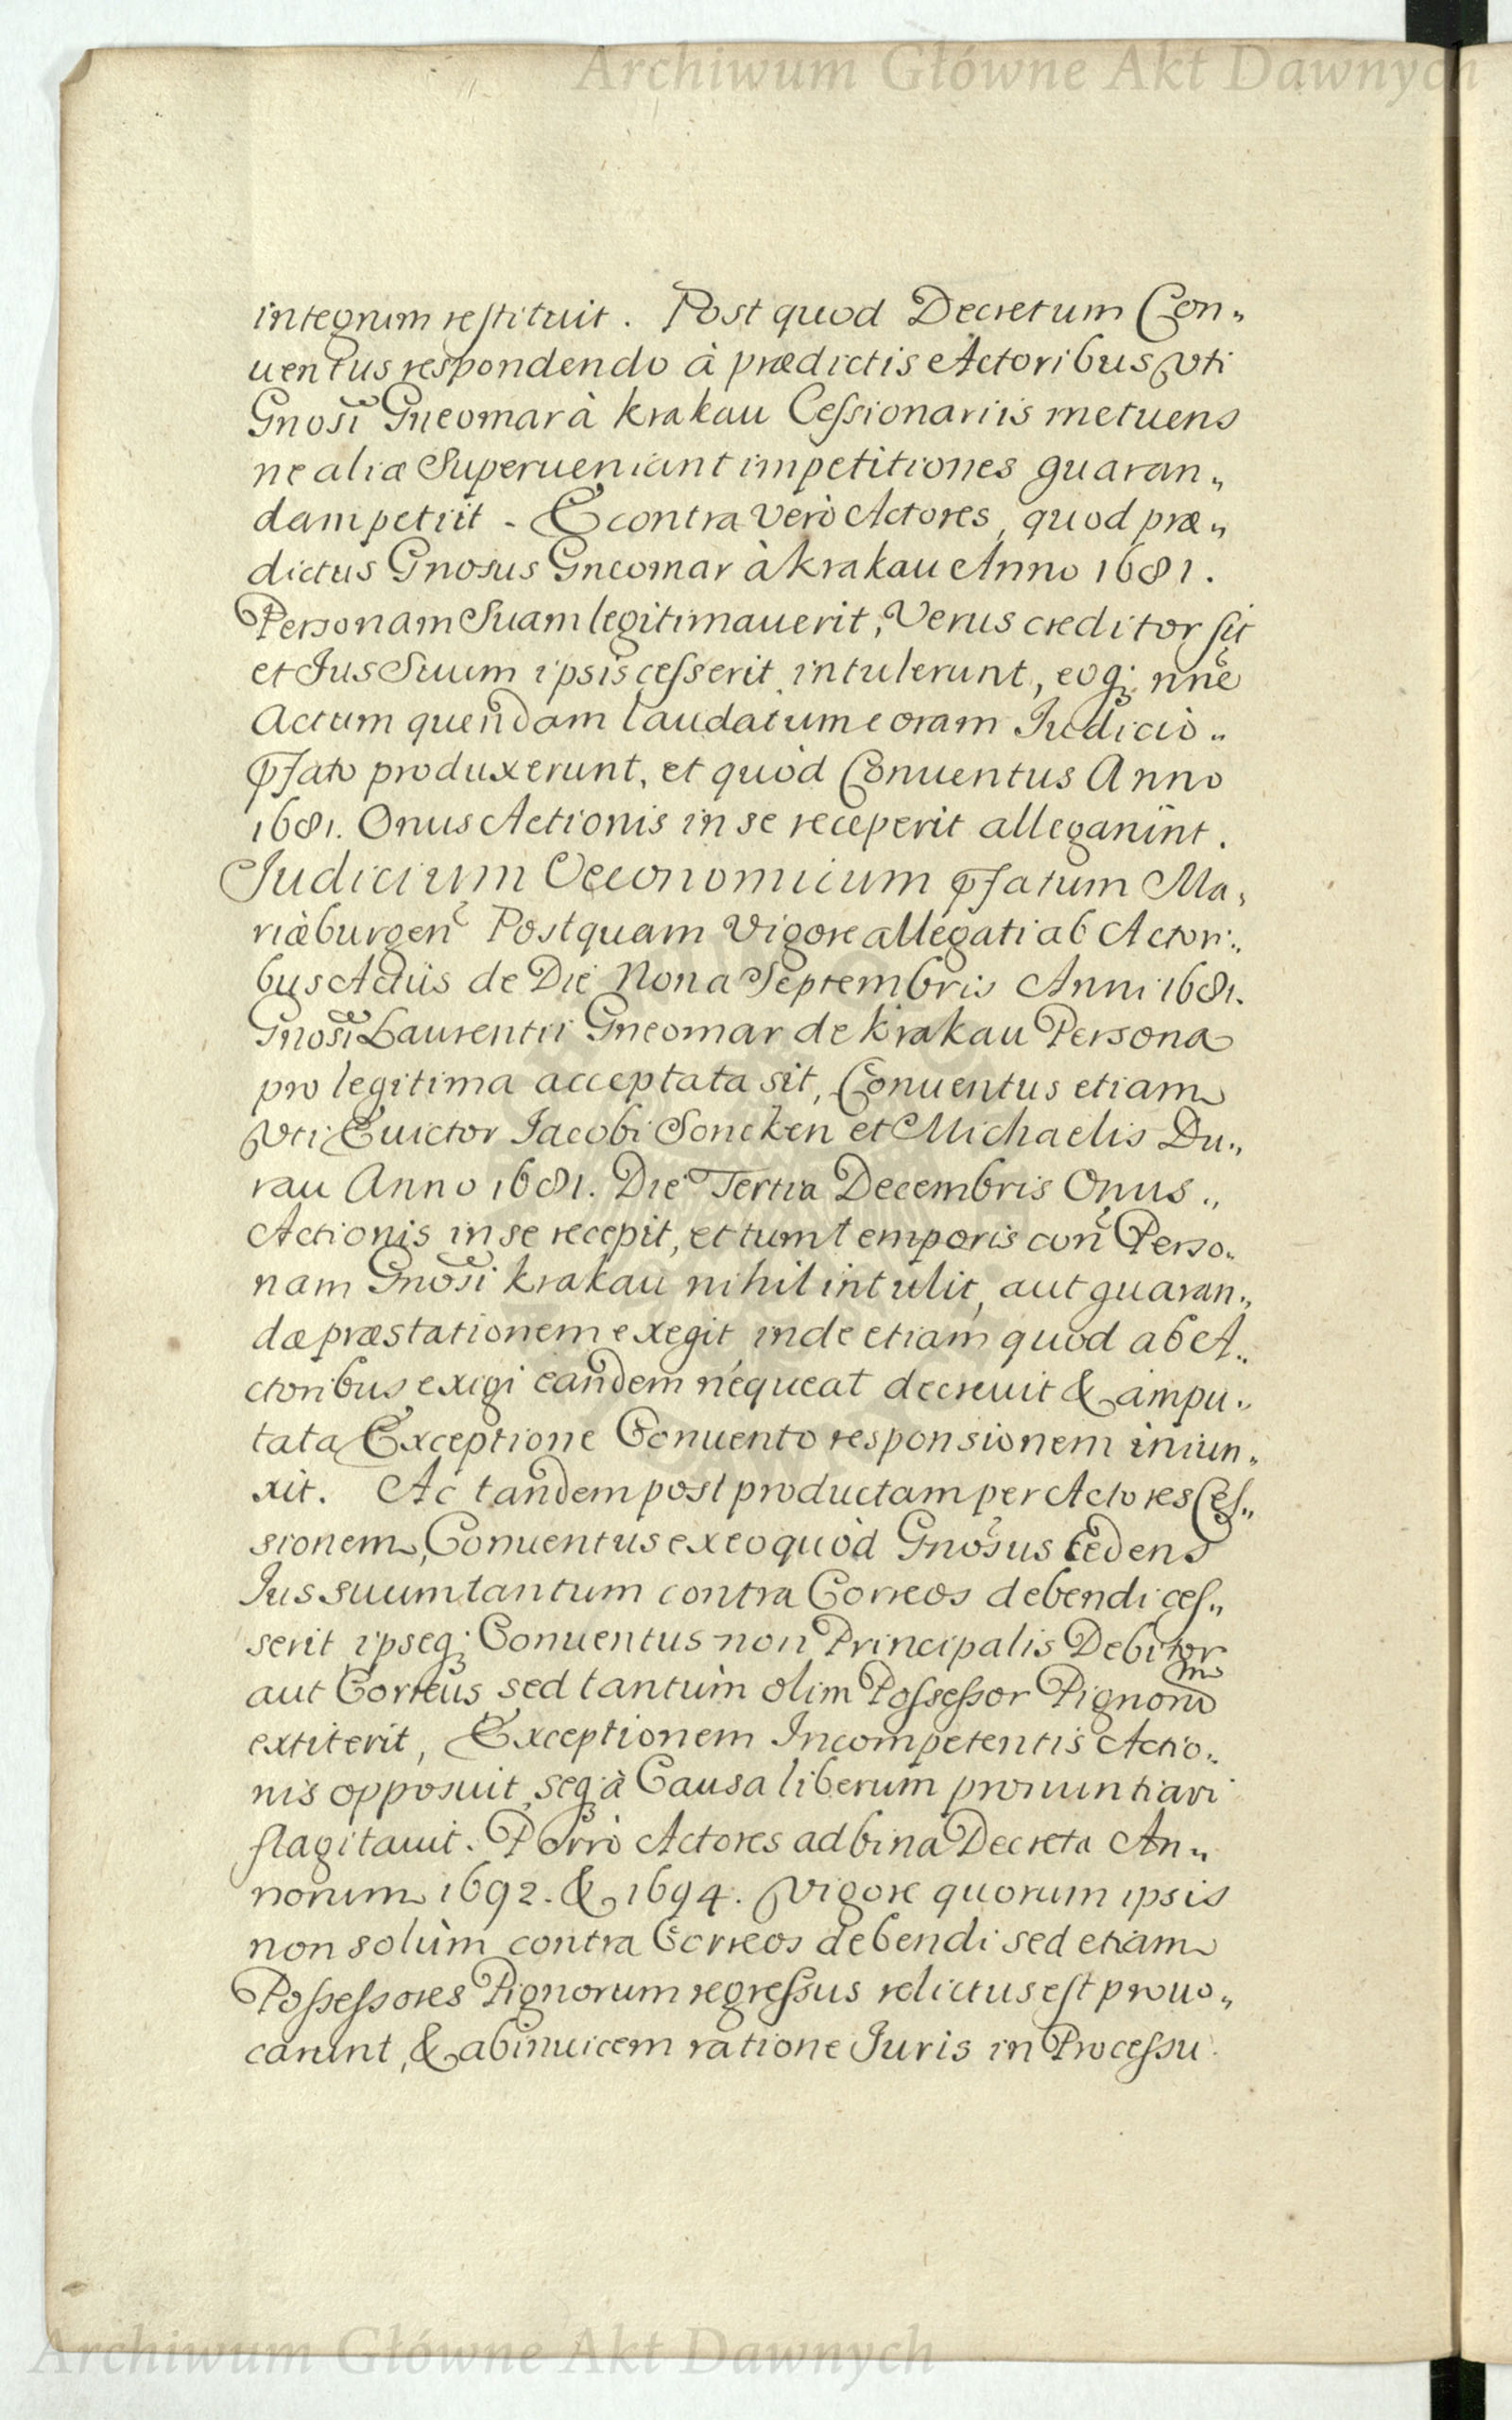 Archiwum Główne Akt Dawnych
integrum restituit. Post quod Decretum Con„
uentus respondendo à prædictis Actoribus Vti
Gnosi Gneomar à Krakau Cessionariis metuens
ne aliæ Superueniant impetitiones guaran„
dam petiit - E contra Verò Actores, quod præ„
dictus Gnosus Gneomar à Krakau Anno 1681.
Personam Suam legitimauerit, Verus creditor sit
et Jus Suum ipsis cesserit intulerunt, eoq; nne
Actum quendam laudatum coram Judicio„
pfato produxerunt, et quòd Conuentus Anno
1681. Onus Actionis in se receperit allegarunt.
Judicium Oeconomicum pfatum Ma„
riæburgen Postquam Vigore allegati ab Actori„
bus Actûs de Die Nona Septembris Anni 1681.
Gnosi Laurentii Gneomar de Krakau Persona
pro legitima acceptata sit, Conuentus etiam
Vti Euictor Jacobi Soncken et Michaelis Du„
rau Anno 1681. Die Tertia Decembris Onus„
Actionis in se recepit, et tum temporis con Perso„
nam Gnosi Krakau nihil intulit, aut guaran„
dæ præstationem exegit inde etiam quod ab A„
ctoribus exigi eandem nequeat decreuit & ampu„
tata Exceptione Conuento responsionem iniun„
xit. Ac tandem post productam per Actores Ces„
sionem, Conuentus ex eo quòd Gnosus Cedens
Jus suum tantum contra Correos debendi ces„
serit ipseq; Conuentus non Principalis Debitor
aut Correus sed tantùm olim Possessor Pignorum
extiterit, Exceptionem Incompetentis Actio„
nis opposuit, seq; à Causa liberum pronuntiari
flagitauit. Porrò Actores ad bina Decreta An„
norum 1692. & 1694. Vigore quorum ipsis
non solùm contra Correos debendi sed etiam
Possessores Pignorum regressus relictus est prouo„
carunt, & abinuicem ratione Juris in Processu
Archiwum Główne Akt Dawnych